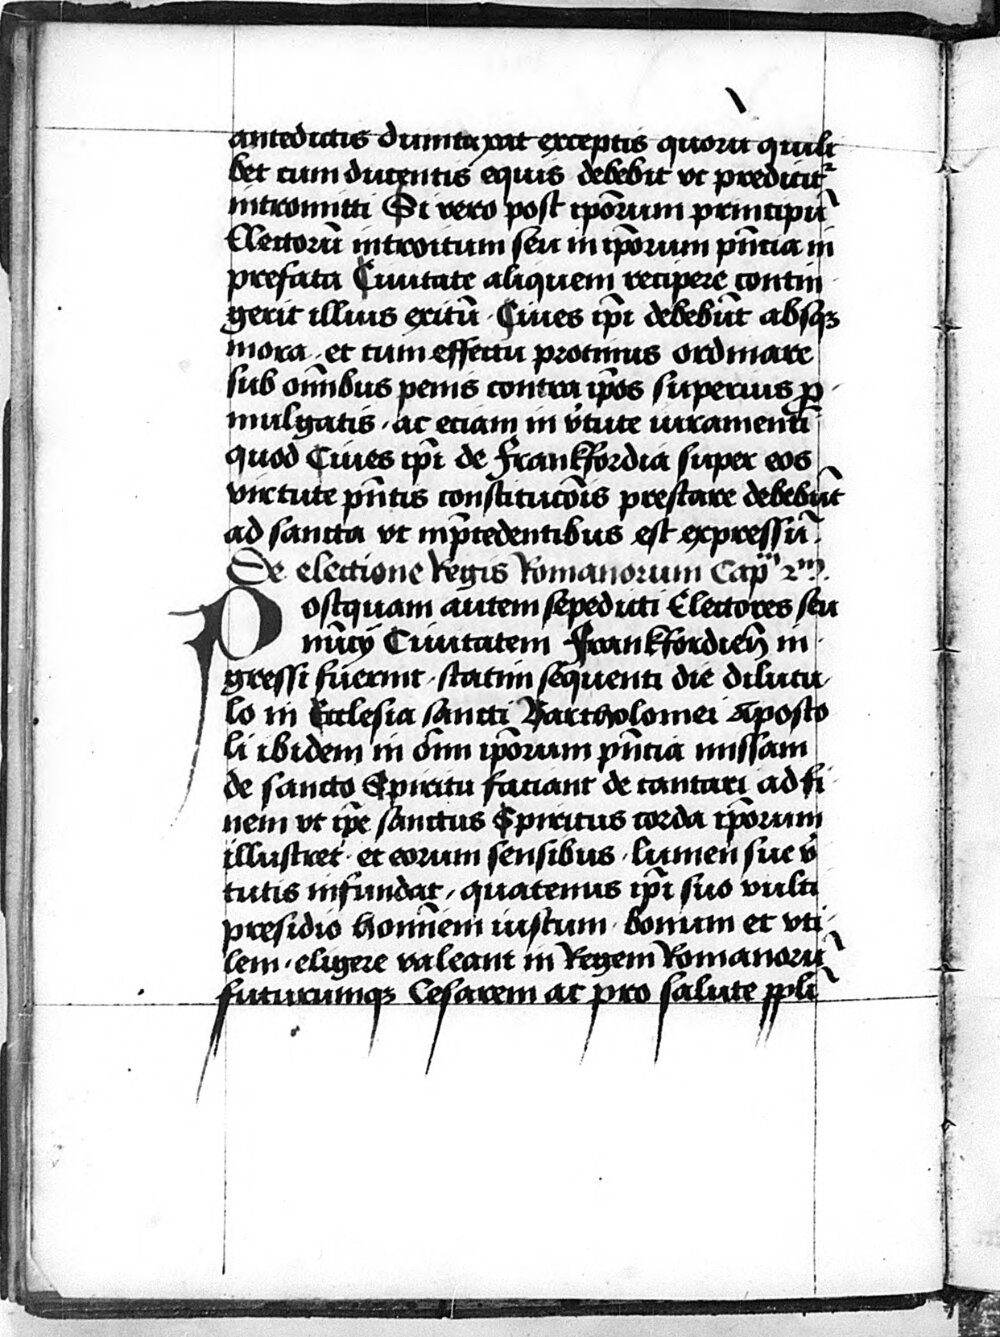 antedictis dumtaxat exceptis quorū quili
bet cum ducentis equis debebit vt predicit᷑
intromitti Si vero post ip̄orum principū
Electorū introitum seu in ip̄orum pn̄cia in
prefata Ciuitate aliquem recipere contin
gerit illius exitū Ciues ip̄i debebūt absqꝫ
mora et cum effectu protinus ordinare
sub om̄ibus penis contra ip̄os superius ꝓ
mulgatis ac eciam in v̓tute iuramenti
quod Ciues ip̄i de Frankfordia super eos
virtute pn̄tis constitucōis prestare debebūt
ad sancta vt inp̄cedentibus est expressū
De electione Regis Romanorum Capᵐ 2ᵐ
Postquam autem sepedicti Electores seu
nūcij Ciuitatem Frankfordien̄ in
gressi fuerint statim sequenti die dilucu
lo in Ecclesia sancti Bartholomei Aposto
li ibidem in om̄i ip̄orum pn̄cia missam
de sancto Spiritu faciant de cantari ad fi
nem vt ip̄e sanctus Spiritus corda ip̄orum
illustret et eorum sensibus lumen sue v̓
tutis infundat quatenus ip̄i suo vulti
presidio homīem iustum bonum et vti
lem eligere valeant in Regem Romanorū
futurumqꝫ Cesarem ac pro salute ppli